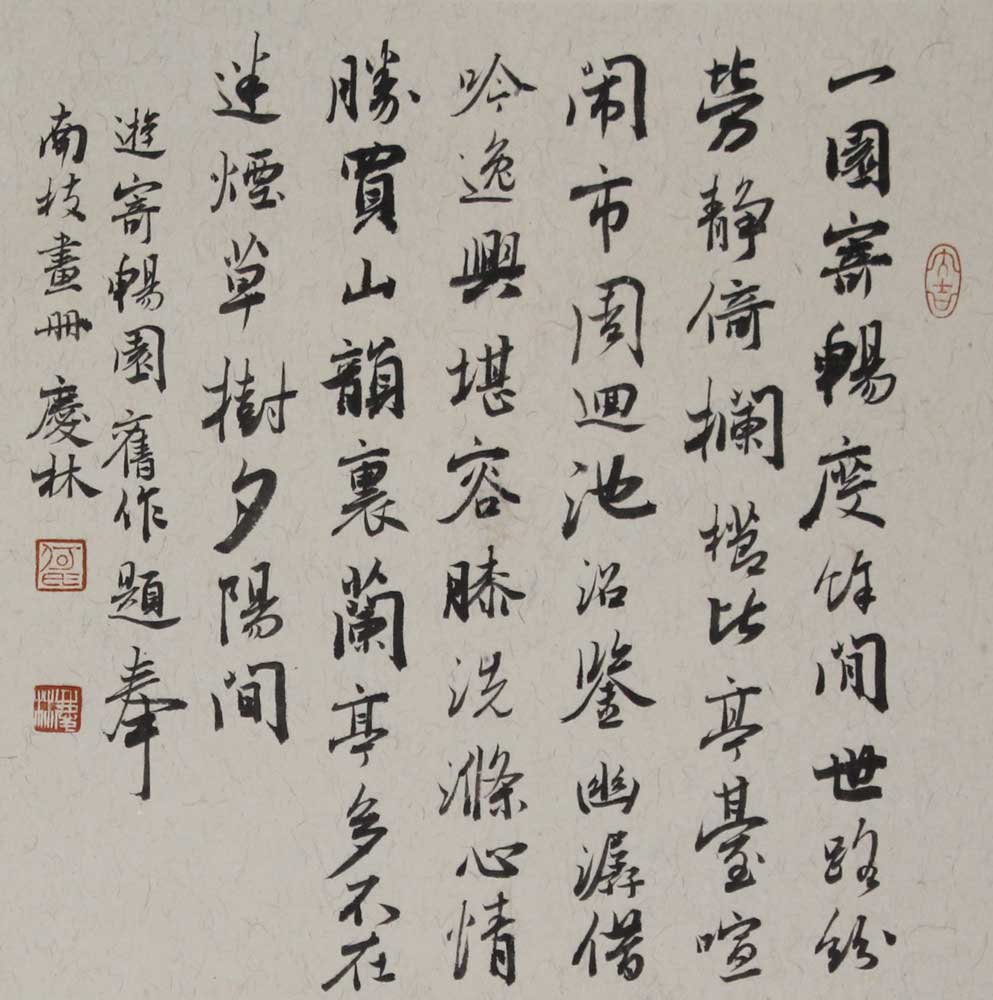 一園寄暢度餘閒世路紛
勞靜倚攔檻比亭臺喧
闹市周迴池沼鑒幽潺借
吟逸興堪容膝洗滌心情
勝買山韻裏蘭亭多不在
迷煙草樹夕陽間
遊寄暢園舊作題奉
南枝畫冊 慶林
大吉